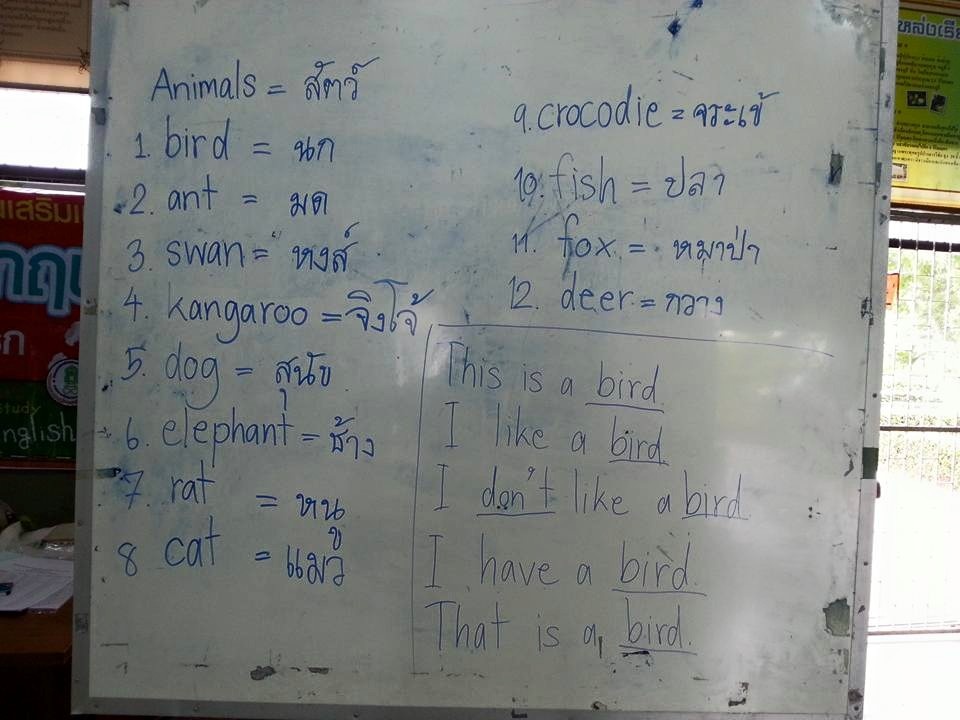 Animals = สัตว์
1. bird = นก
2. ant = มด
3. swan = หงส์
4. kangaroo = จิงโจ้
5. dog = สุนัข
6. elephant = ช้าง
7. rat = หนู
8 cat = แมว
9. crocodie = จระเข้
10. fish = ปลา
11. fox = หมาป่า
12. deer = กวาง
This is a bird.
I like a bird.
I don't like a bird
I have a bird.
That is a bird.
study
nglish